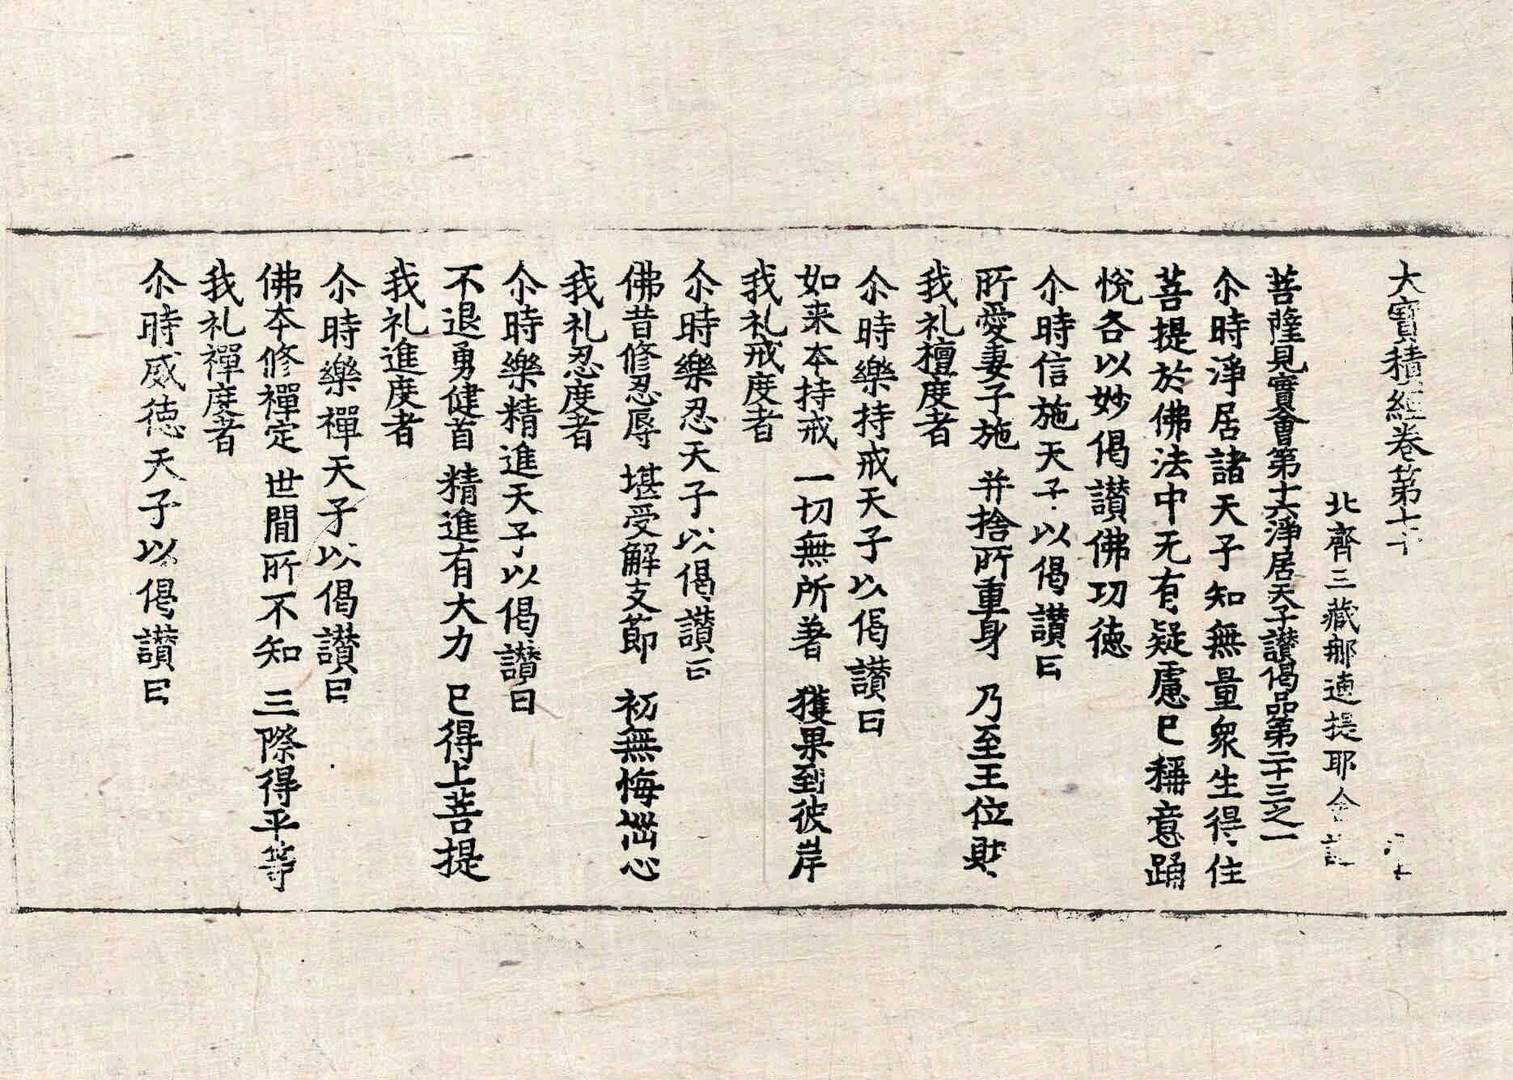 大寶積經卷第七十
北齊三藏那連提耶舍譯
菩薩見實會第十六淨居天子讃偈品第二十三之一
尒時淨居諸天子知無量衆生得住
菩提於佛法中无有疑慮巳稱意踊
悅各以妙偈讃佛功徳
尒時信施天子以偈讃曰
所愛妻子施 并捨所重身 乃至王位財
我礼檀度者
尒時樂持戒天子以偈讃曰
如来本持戒 一切無所著 獲果到彼岸
我礼戒度者
尒時樂忍天子以偈讃曰
佛昔修忍辱 堪受解支節 初無悔㛴心
我礼忍度者
尒時樂精進天子以偈讃曰
不退勇健首 精進有大力 巳得上菩提
我礼進度者
尒時樂禪天子以偈讃曰
佛本修禪定 世間所不知 三際得平等
我礼禪度者
尒時威徳天子以偈讃曰